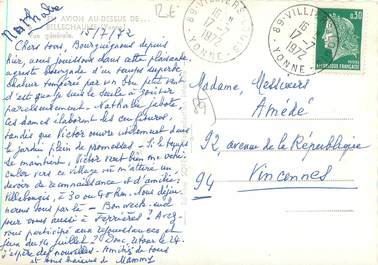 EN AVION AU-DESSUS DE...
VILLECHAUME
Vue générale.
15/7/72
Chers tous, Bourguignons depuis
hier, nous jouissons dans cette plaisante
agreste bourgade d'un temps superbe
chaleur tempérée par un bon petit
vent d'est que je suis la seule à goûter
parcellement. Nathalie jabote,
les dames élaborent les confitures,
tandis que Victor œuvre au
jardin plein de promesses. Si le temps
se maintient, Victor veut bien me véhi-
culer vers ce village où m'attire un
devoir de reconnaissance et d'amitié
Villebougis, à 30 ou 40 km. Nous déjeu-
nerons vous par là - Bon week-end
pour vous aussi à Ferrières ? Avez-
vous participé aux réjouissances et
feux du 14 juillet ? Donc, retour le 24.
J'espère des nouvelles. Amitiés du tous
et bons baisers de Mammy
89-VILLIERS-LOUIS
YONNE
16 H
17-7
1972
89-VILLIERS-LOUIS
YONNE
16 H
17-7
1972
0,30
REPUBLIQUE FRANÇAISE
Madame, Messieurs
Amédé
92, avenue de la République
Vincennes
94